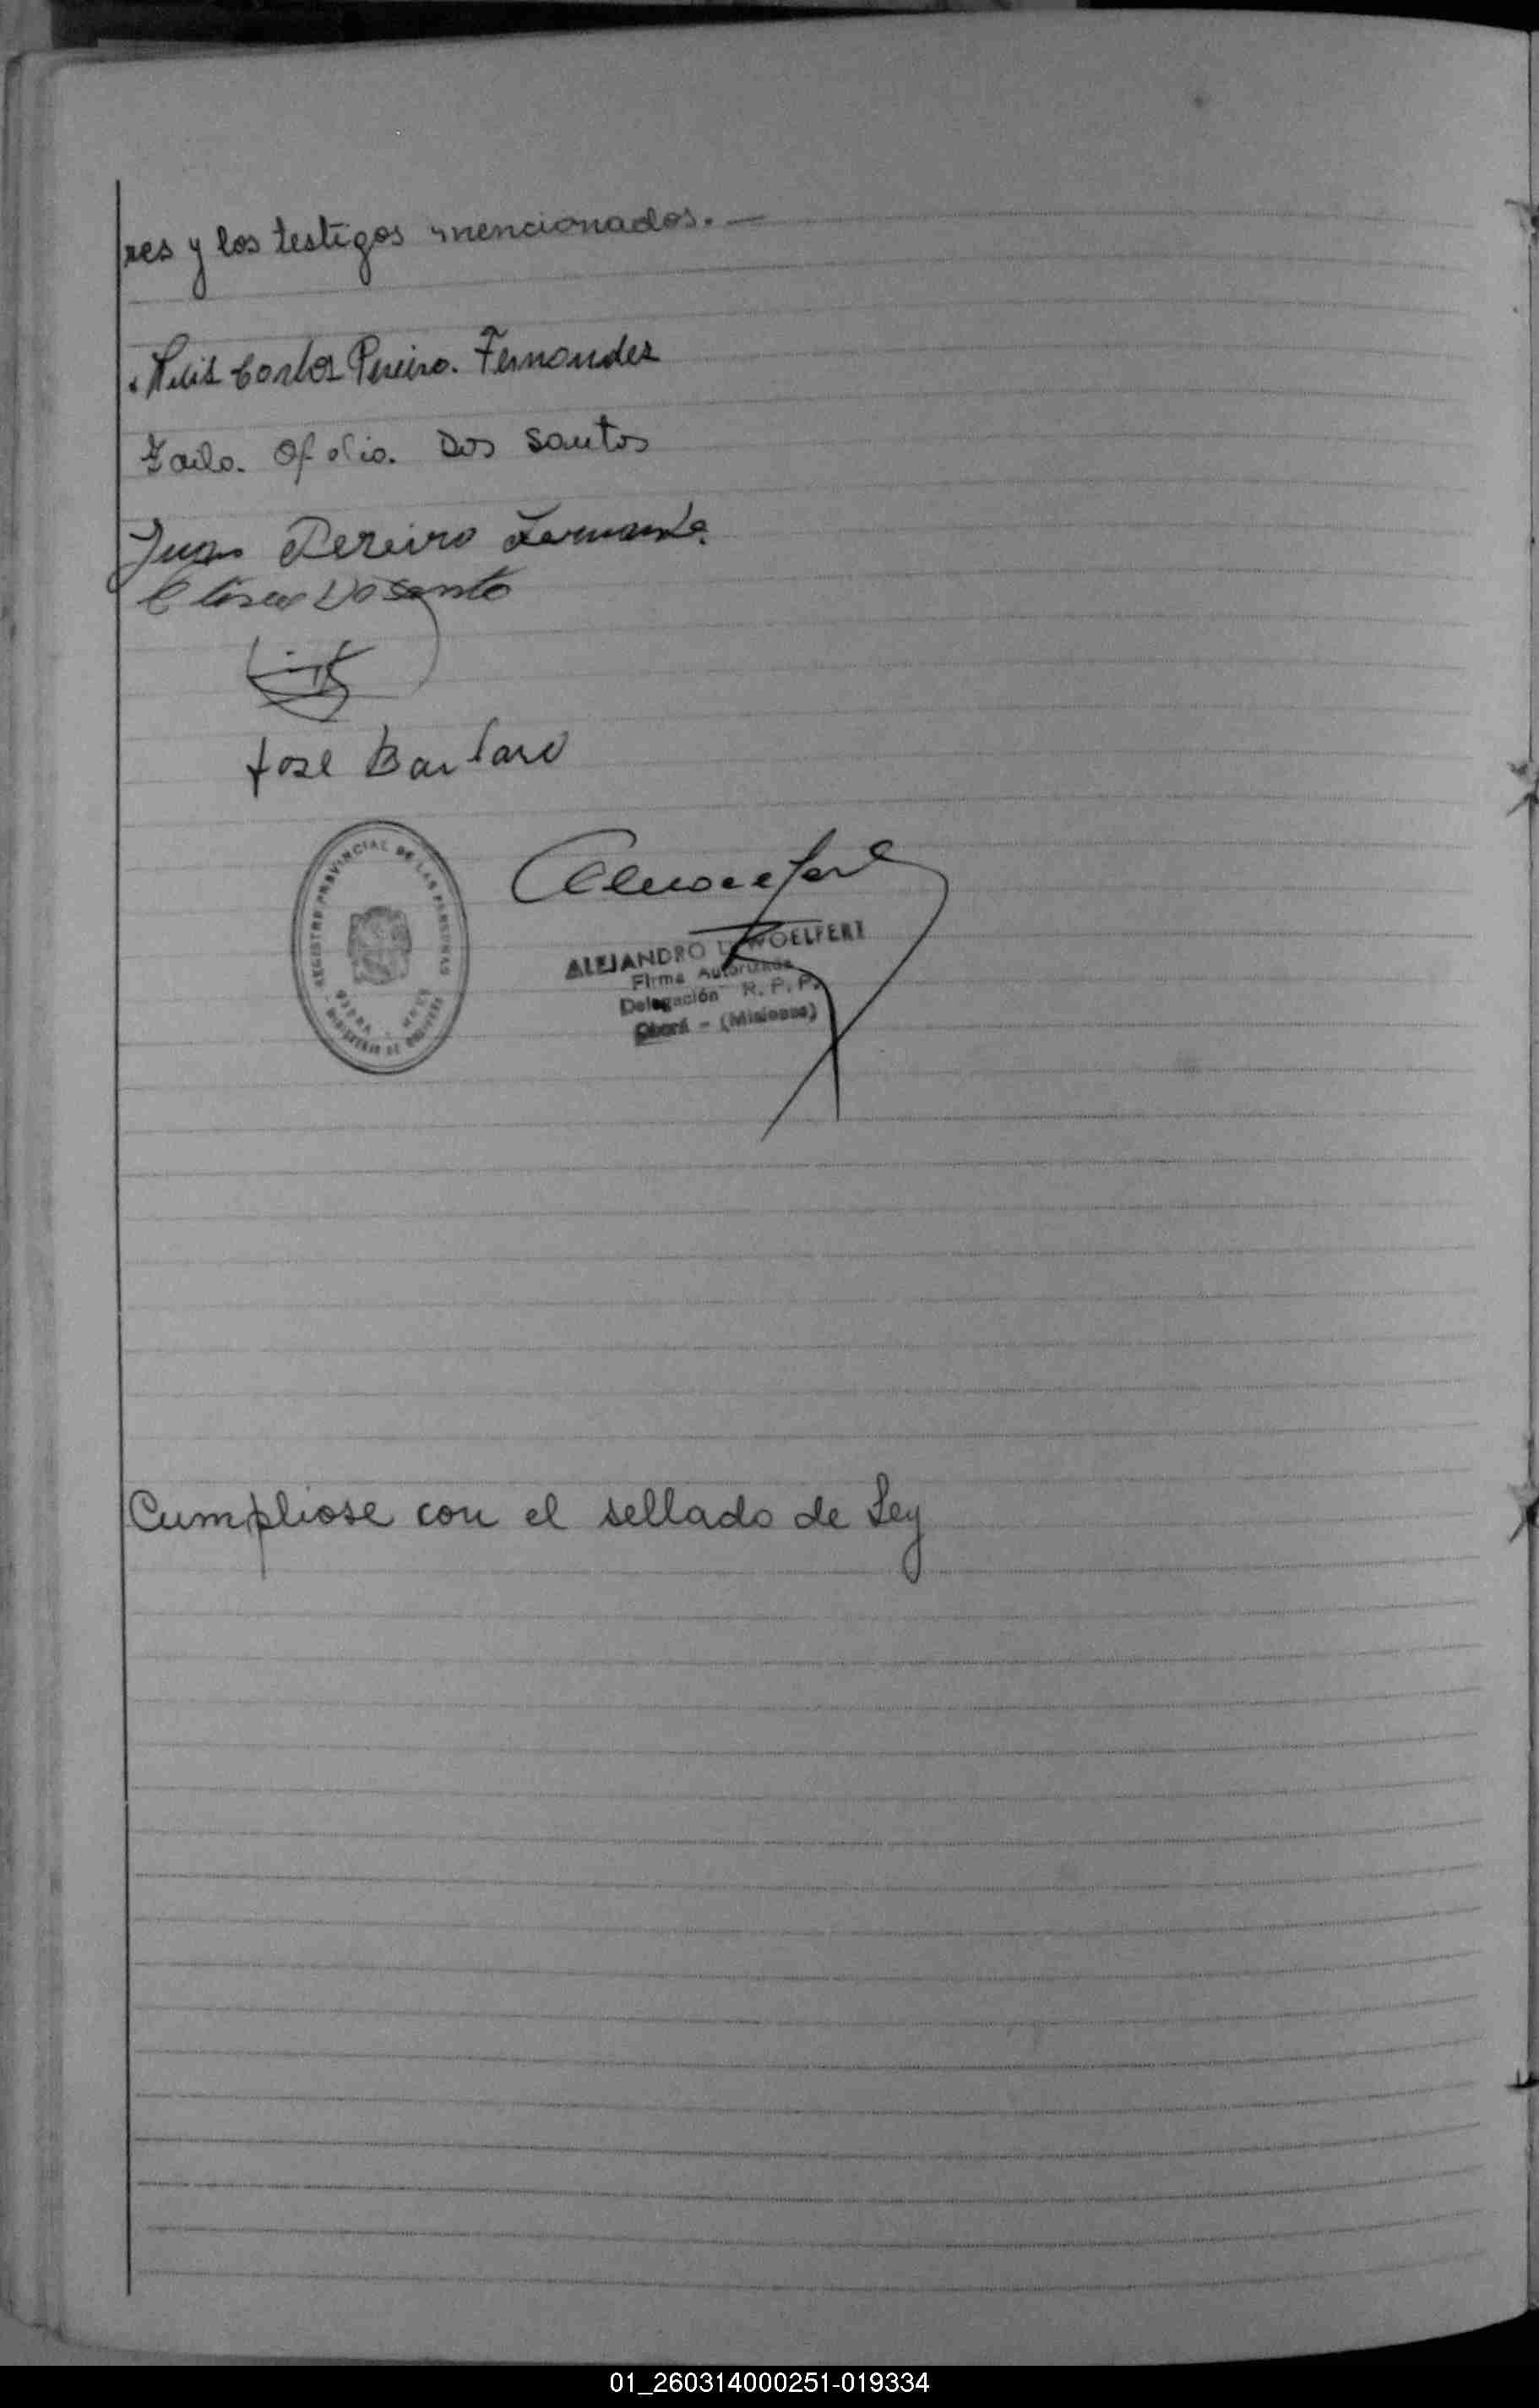 res y los testigos mencionados. —
Luis Carlos Pereiro. Fernandez
Dos Santos
Juan Pereiro Fernande
Dosanto
Jose Barbaro
REGISTRO PROVINCIAL DE LAS PERSONAS
ALEJANDRO WOELFERT
Firma Autorizada
Delegación R. P. P.
Oberá - (Misiones)
Cumpliose con el sellado de Ley
01_260314000251-019334